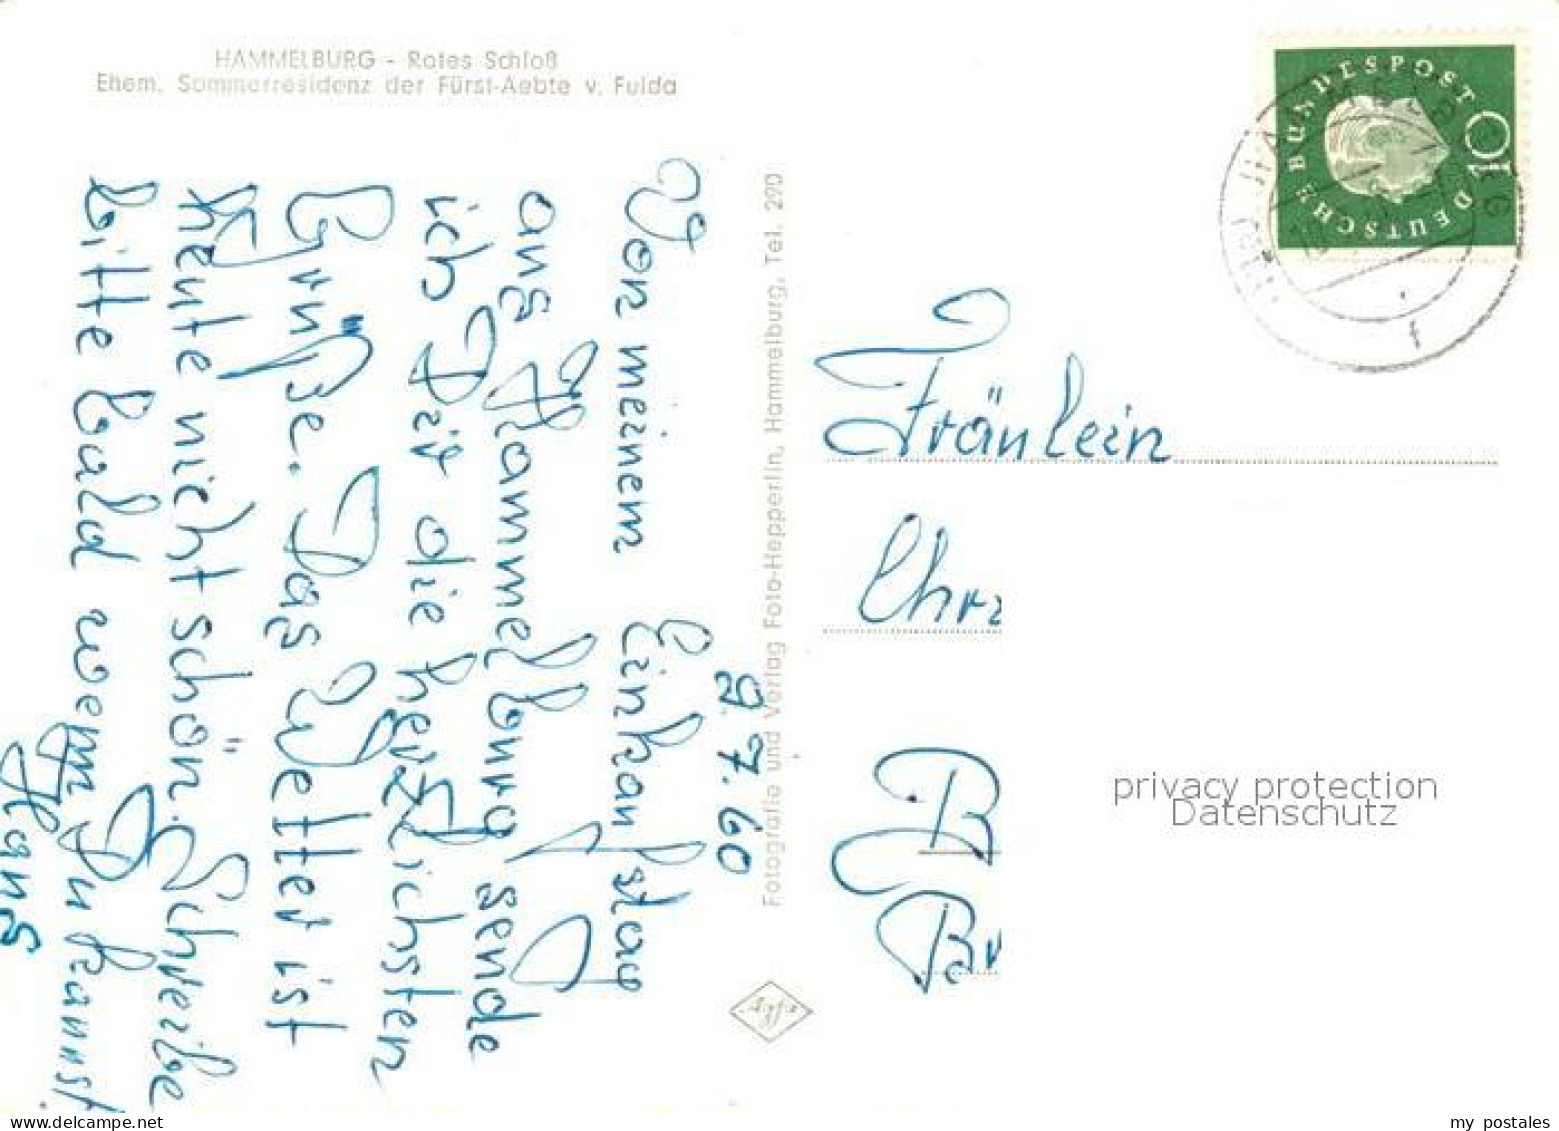 HAMMELBURG - Rotes Schloß
Ehem. Sommerresidenz der Fürst-Aebte v. Fulda
9.7.60
Von meinem Einkaufstag
aus Hammelburg sende
ich Dir die herzlichsten
Grüße. Das Wetter ist
heute nicht schön. Schreibe
bitte bald wenn Du kannst.
Hans
Fotografie und Verlag Foto-Hepperlin, Hammelburg, Tel. 290
Agfa
DEUTSCHE BUNDESPOST
10
Fräulein
Chr
B
Br
privacy protection
Datenschutz
my postales